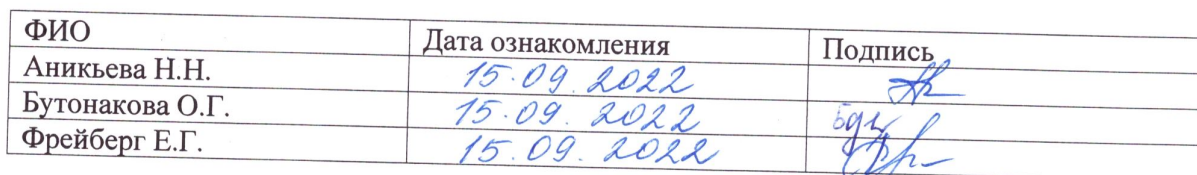 ФИО Дата ознакомления Подпись
Аникьева Н.Н. 15.09.2022
Бутонакова О.Г. 15.09.2022
Фрейберг Е.Г. 15.09.2022